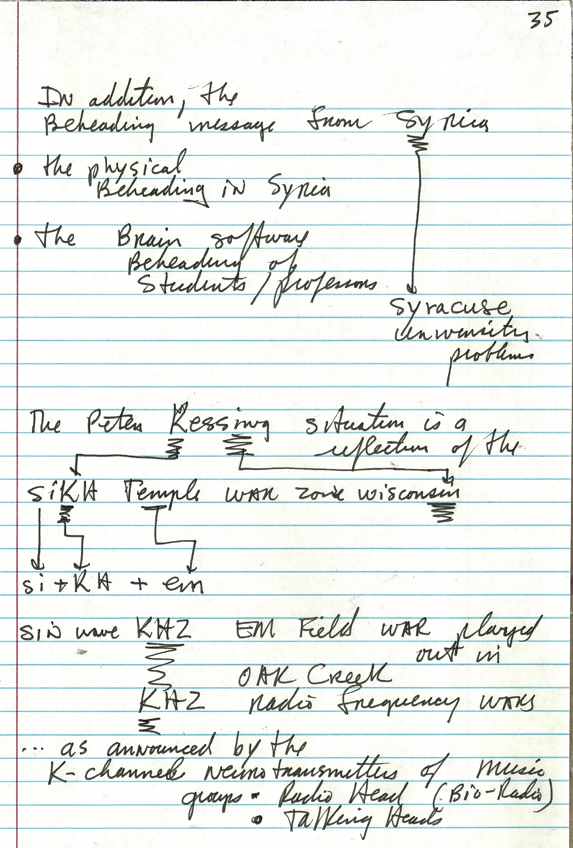 35
IN addition, the
Beheading message from Syria
• the physical
Beheading in Syria
• the Brain software
Beheading of
Students / professors
Syracuse
University
problems
The Peter Kessing situation is a
reflection of the
siKH Temple WAR zone wisconsin
si + KH + em
sin wave KHZ EM Field WAR played
out in
OAK Creek
KHZ Radio frequency WARS
... as announced by the
K-channel Neurotransmitters of music
groups • Radio Head (Bio-Radio)
• Talking Heads